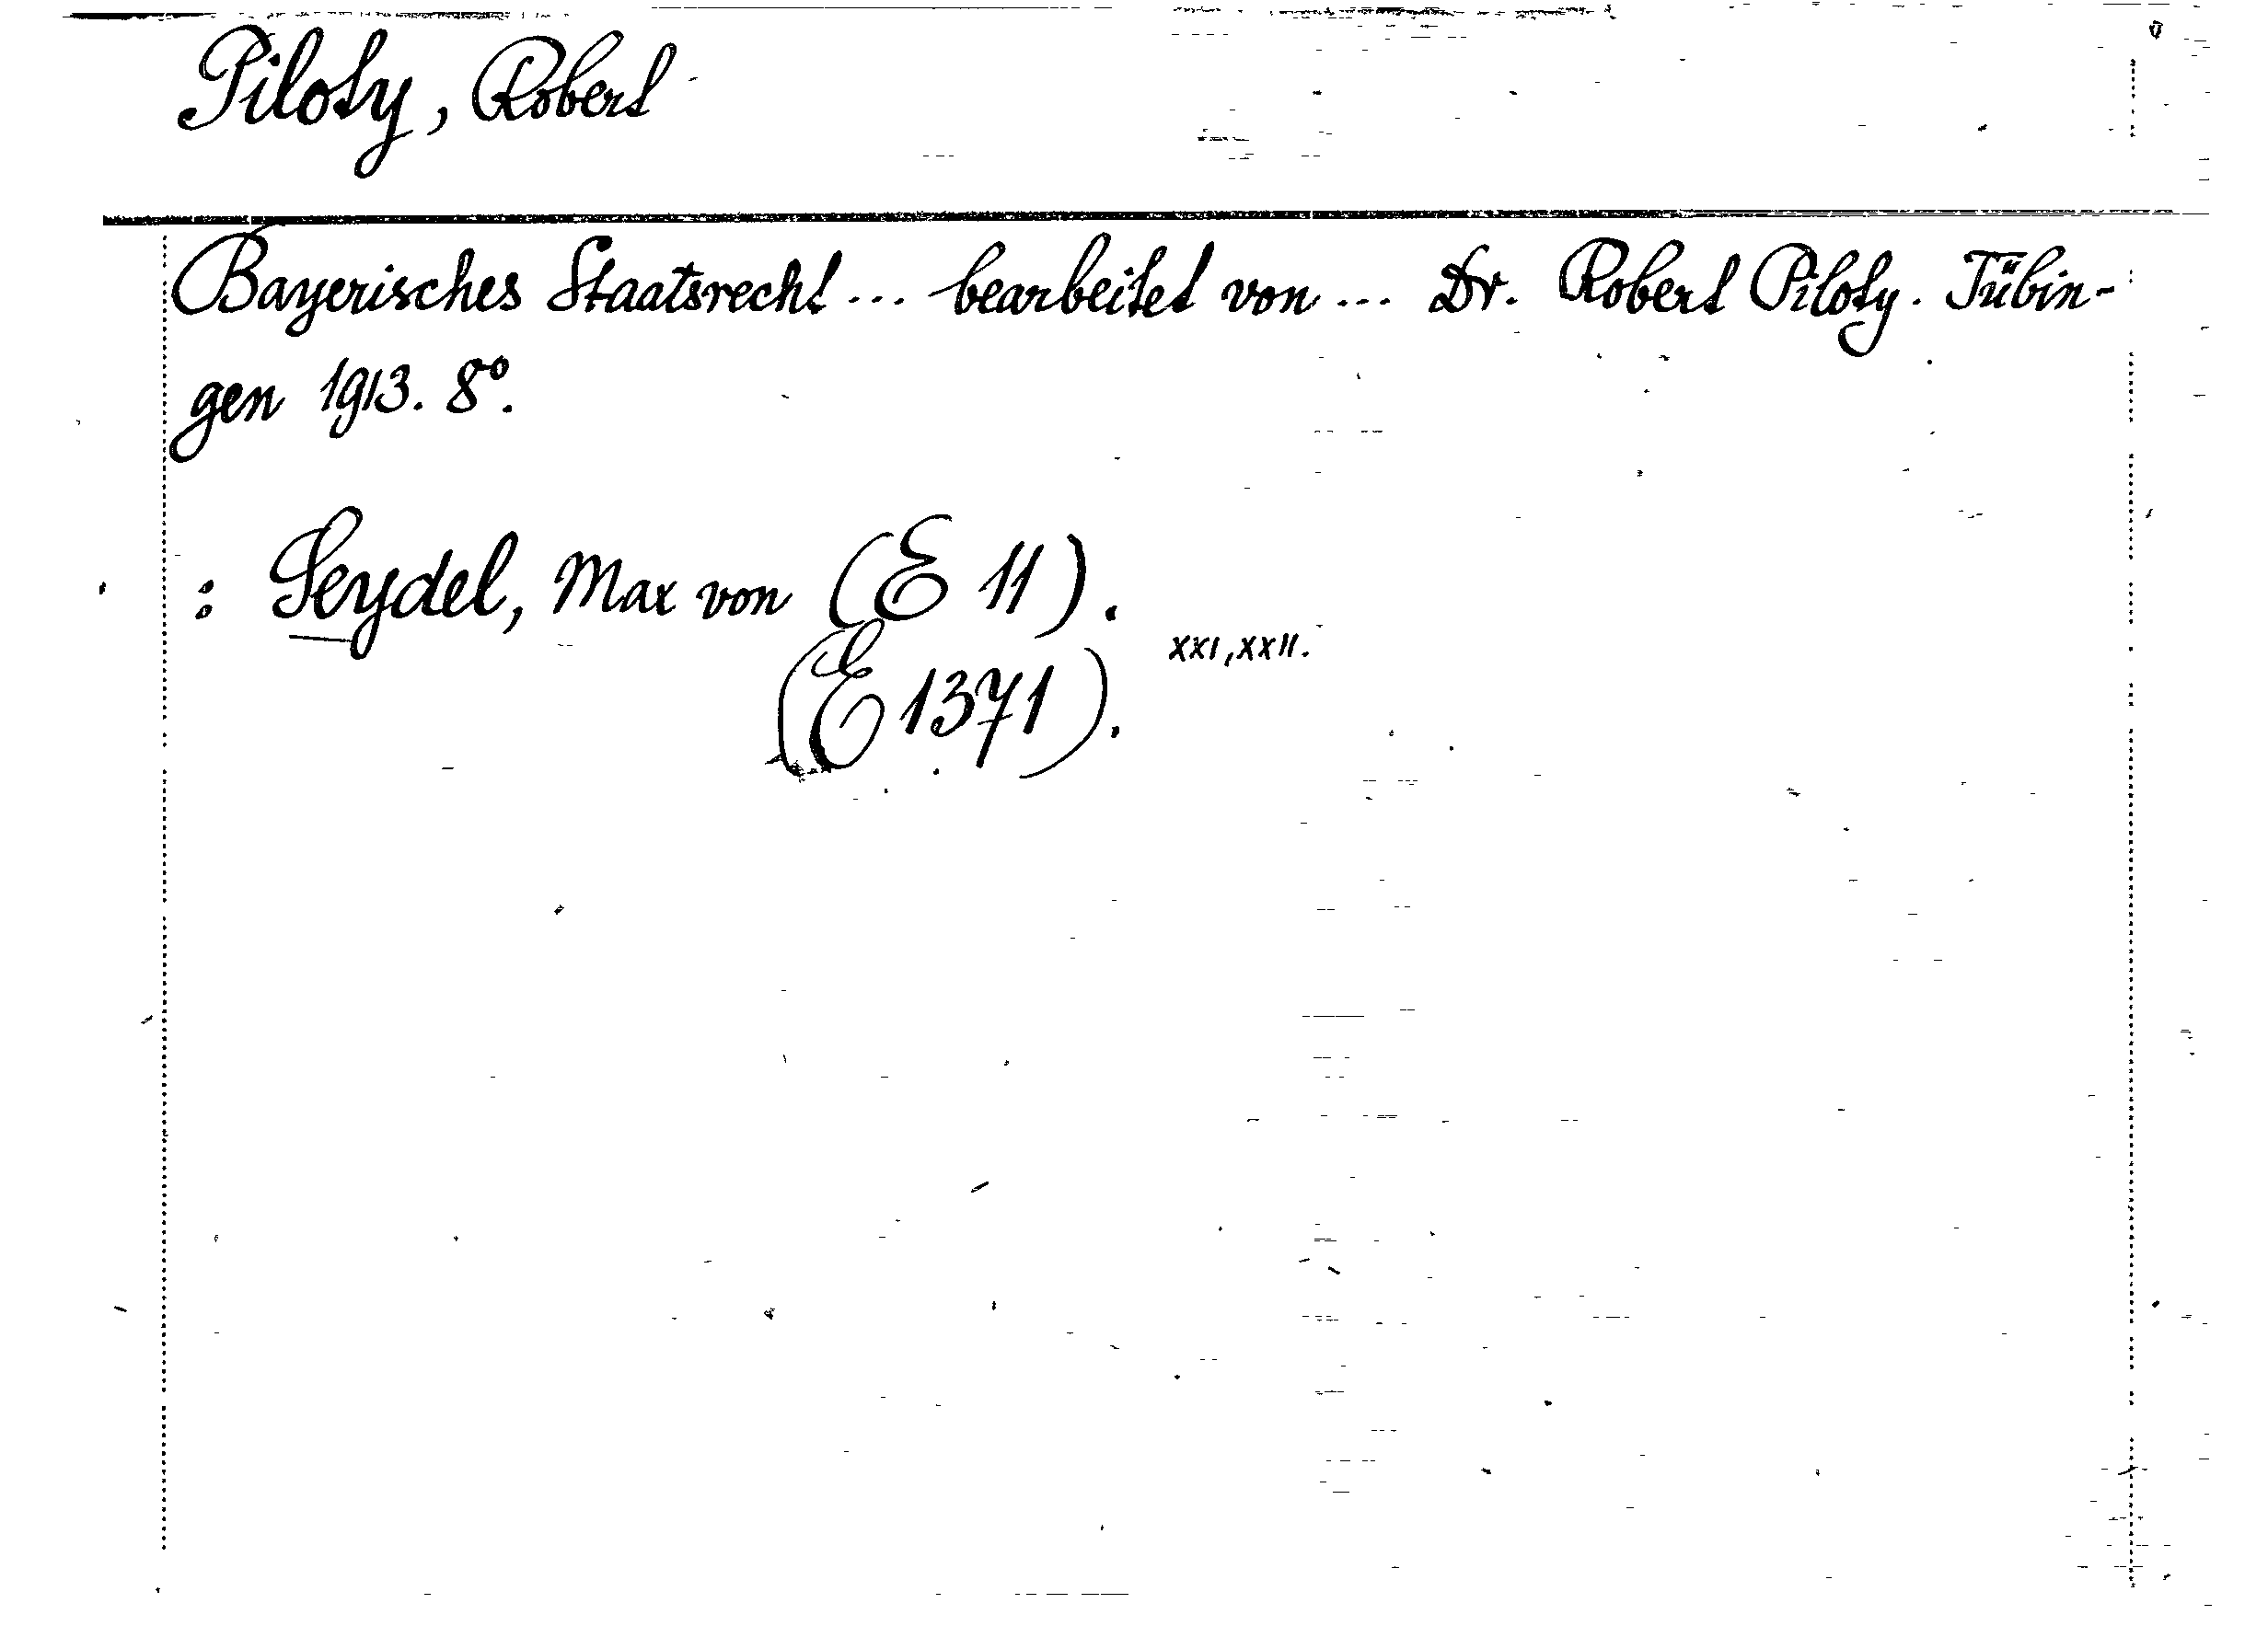 Piloty, Robert
Bayerisches Staatsrecht ... bearbeitet von ... Dr. Robert Piloty. Tübin-
gen 1913. 8°.
: Seydel, Max von (E 11).
(E 1371). XXI, XXII.